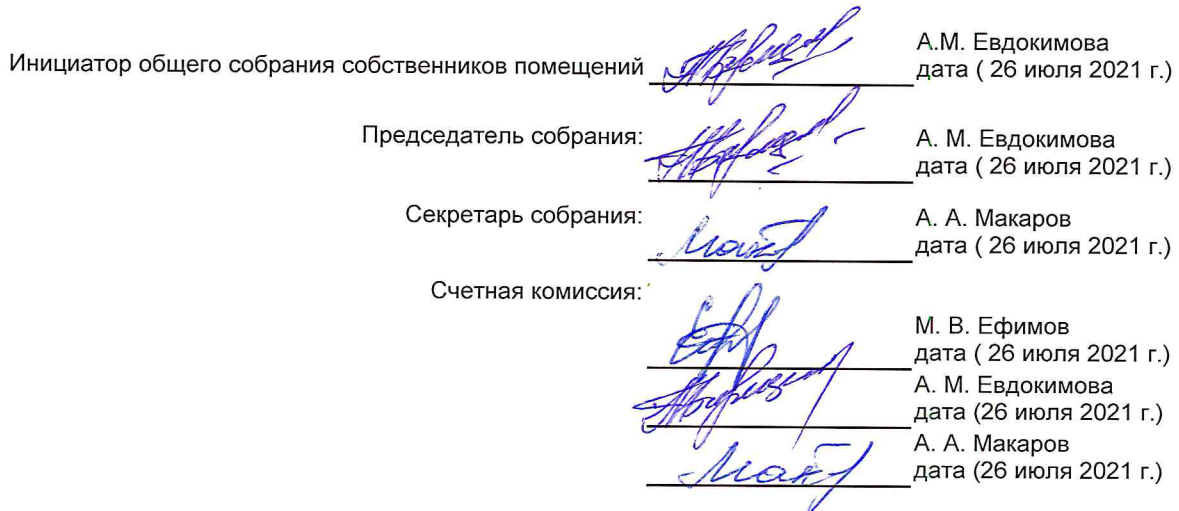 А.М. Евдокимова
Инициатор общего собрания собственников помещений
дата ( 26 июля 2021 г.)
Председатель собрания:
А. М. Евдокимова
дата ( 26 июля 2021 г.)
Секретарь собрания:
А. А. Макаров
дата ( 26 июля 2021 г.)
Счетная комиссия:
М. В. Ефимов
дата ( 26 июля 2021 г.)
А. М. Евдокимова
дата (26 июля 2021 г.)
А. А. Макаров
дата (26 июля 2021 г.)